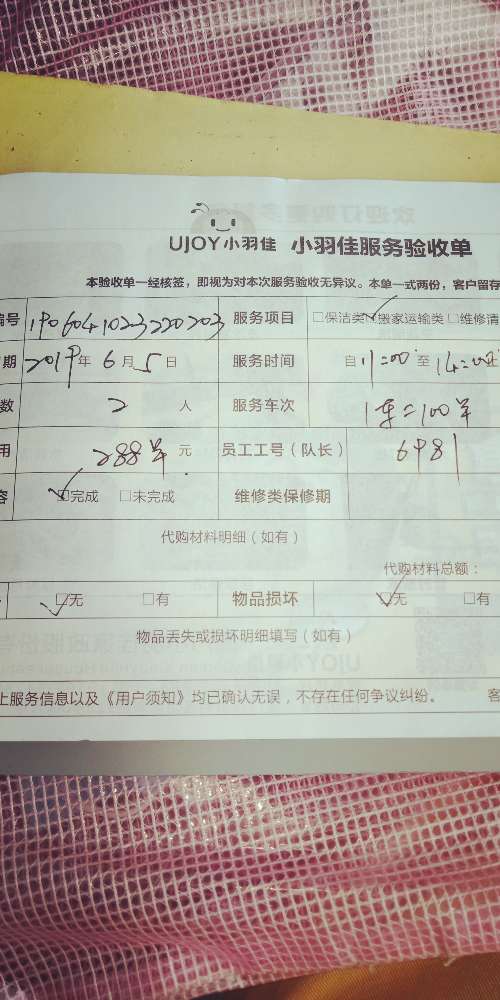 UJOY小羽佳 小羽佳服务验收单
本验收单一经核签，即视为对本次服务验收无异议。本单一式两份，客户留存
编号 1906041023220203 服务项目 □保洁类 ☑搬家运输类 □维修清
期 2019年 6月 5日 服务时间 自 11:00 至 14:00止
数 2 人 服务车次 1车=100单
用 288单 元 员工工号（队长） 6981
容 ☑完成 □未完成 维修类保修期
代购材料明细（如有）
代购材料总额：
☑无 □有 物品损坏 ☑无 □有
物品丢失或损坏明细填写（如有）
上服务信息以及《用户须知》均已确认无误，不存在任何争议纠纷。 客